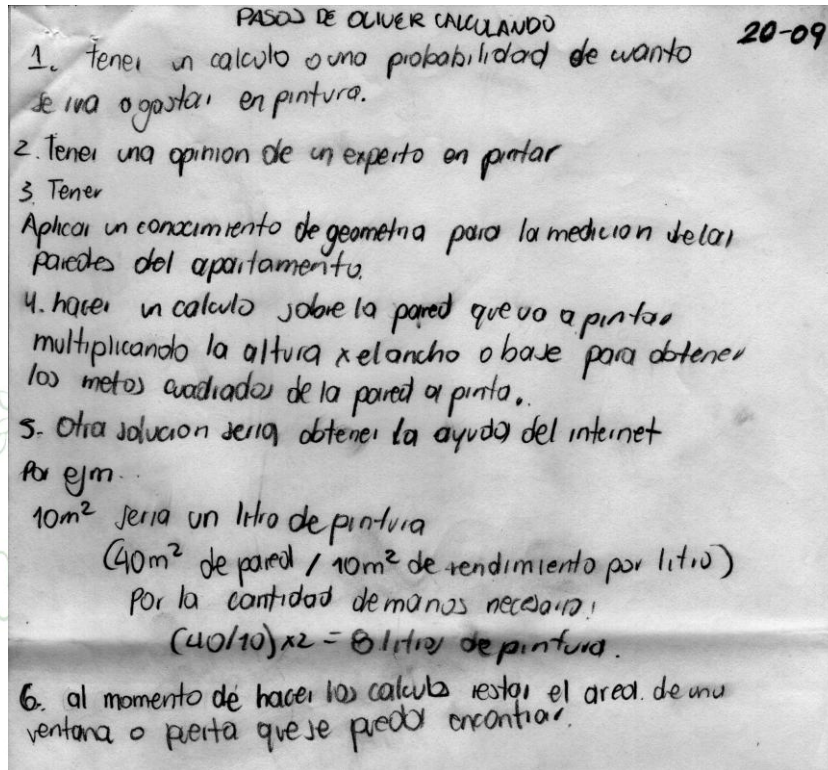 PASOS DE OLIVER CALCULANDO
20-09
1. tener un calculo o una probabilidad de cuanto
se iva a gastar en pintura.
2. Tener una opinion de un experto en pintar
3. Tener
Aplicar un conocimiento de geometria para la medicion de las
paredes del apartamento.
4. hacer un calculo sobre la pared que va a pintar
multiplicando la altura x el ancho o base para obtener
los metos cuadrados de la pared a pinta.
5. Otra solucion seria obtener la ayuda del internet
Por ejm..
10m² seria un litro de pintura
(40m² de pared / 10m² de rendimiento por litro)
Por la cantidad de manos necesaria:
(40/10) x2 = 8 litros de pintura.
6. al momento de hacer los calculos restar el area. de una
ventana o puerta que se pueda encontrar.